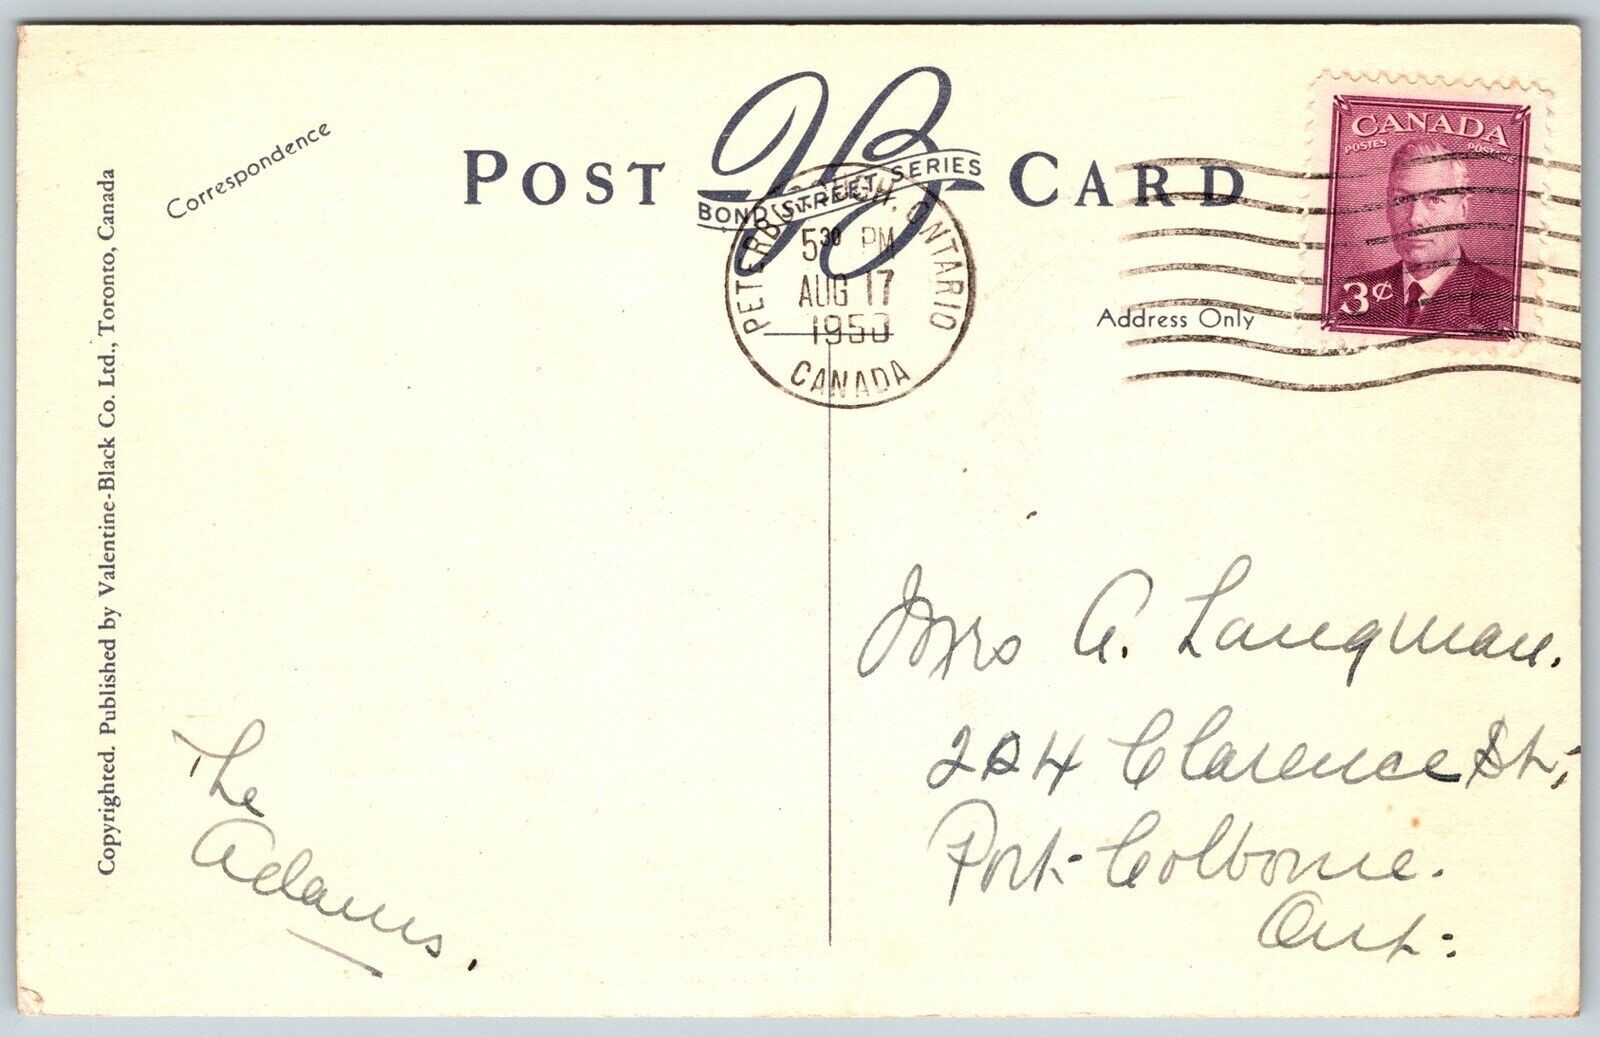 Correspondence
POST CARD
VB
BOND STREET SERIES
PETERBOROUGH, ONTARIO
5³⁰ PM
AUG 17
1950
CANADA
CANADA
POSTES POSTAGE
3¢
Address Only
Copyrighted. Published by Valentine-Black Co. Ltd., Toronto, Canada
The
Adams.
Mrs A. Langman.
224 Clarence St,
Port Colborne.
Ont.